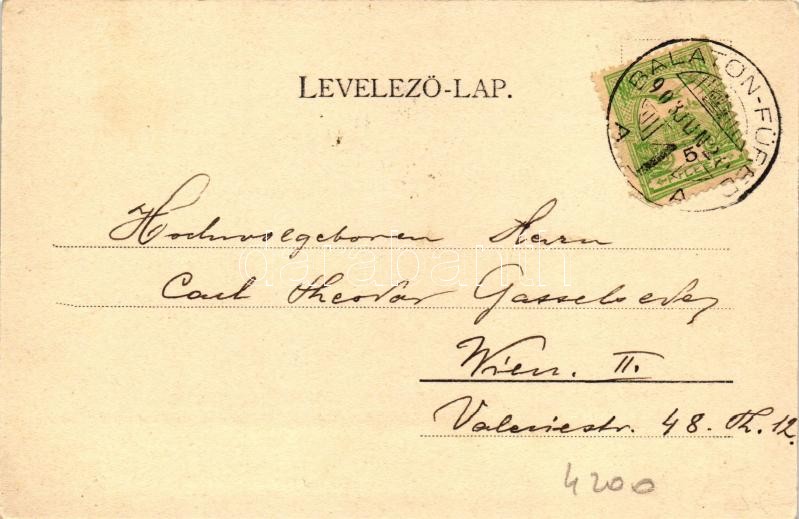 LEVELEZŐ-LAP.
BALATON-FÜRED
903 JUN
5
A A
Hochwolgeboren Herrn
Carl Theodor
Wien. II.
Valeriestr. 48. Th. 12.
4200
darabanth